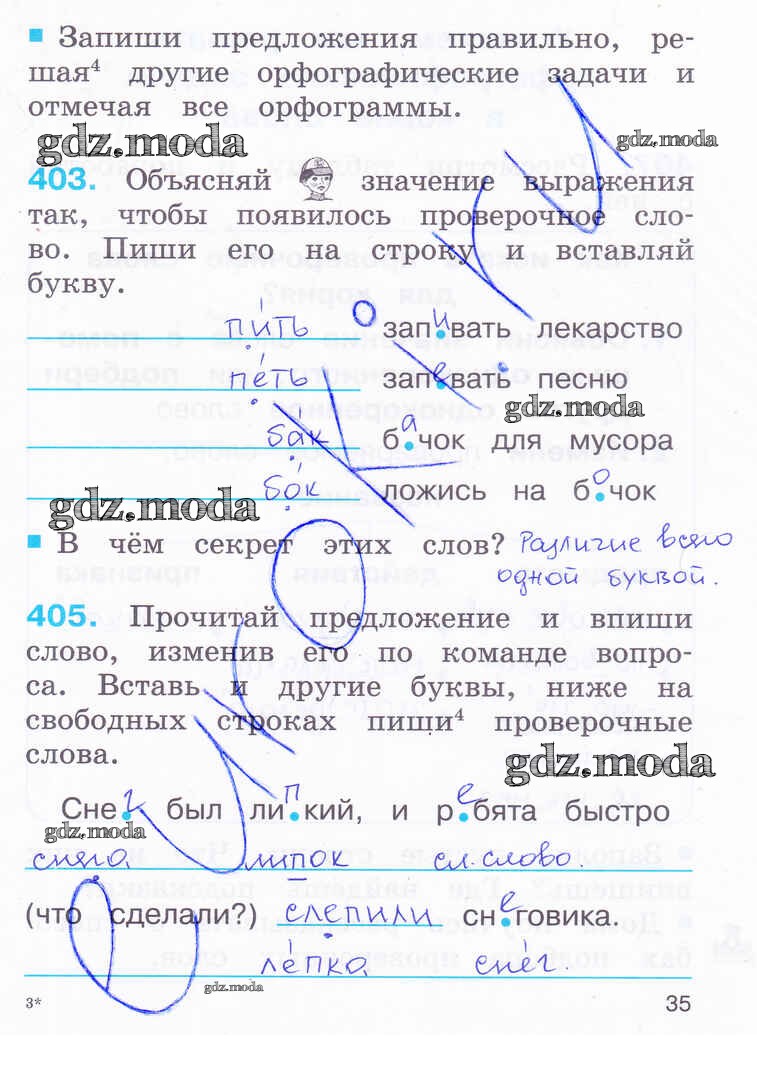 Запиши предложения правильно, ре-
шая⁴ другие орфографические задачи и
отмечая все орфограммы.
gdz.moda
gdz.moda
403. Объясняй значение выражения
так, чтобы появилось проверочное сло-
во. Пиши его на строку и вставляй
букву.
пить запивать лекарство
петь запевать песню
gdz.moda
бак бачок для мусора
бок ложись на бочок
gdz.moda
В чём секрет этих слов? Различие всего
одной буквой.
405. Прочитай предложение и впиши
слово, изменив его по команде вопро-
са. Вставь и другие буквы, ниже на
свободных строках пиши⁴ проверочные
слова.
gdz.moda
Снег был липкий, и ребята быстро
gdz.moda
снега липок сл. слово.
(что сделали?) слепили снеговика.
лепка снег.
gdz.moda
3* 35